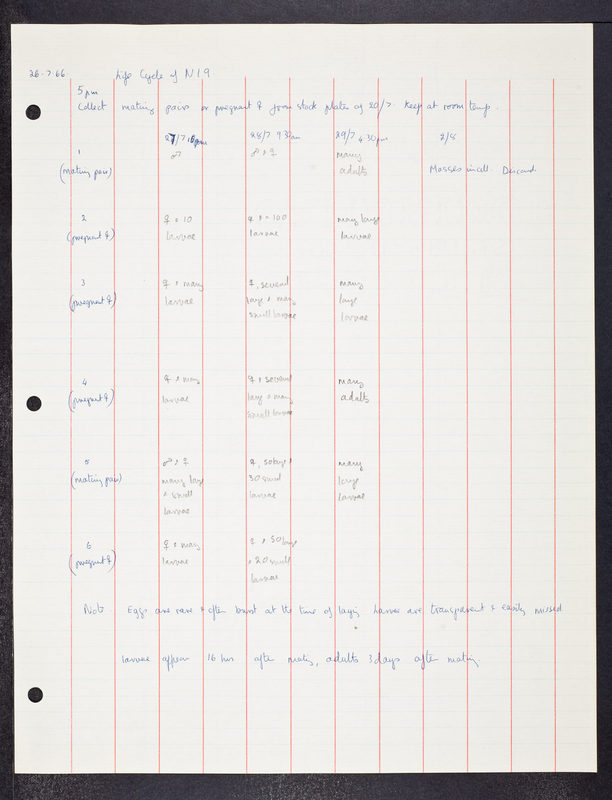 26.7.66 Life Cycle of N19
5pm
Collect mating pairs or pregnant ♀ from stock plates of 20/7. Keep at room temp.
27/7 pm 28/7 9.30am 29/7 4.30pm 2/8
1 ♂ ♂ + ♀ many
(mating pair) adults Masses in all. Discard
2 ♀ + 10 ♀ + ≈ 100 many large
(pregnant ♀) larvae larvae larvae
3 ♀ + many ♀, several many
(pregnant ♀) larvae large + many large
small larvae larvae
4 ♀ + many ♀ + several many
(pregnant ♀) larvae large + many adults
small larvae
5 ♂ + ♀ ♀, 50 large + many
(mating pair) many large 30 small large
+ small larvae larvae
larvae
6 ♀ + many ♀ + 50 large
(pregnant ♀) larvae + 20 small
larvae
Note. Eggs are rare + often burst at the time of laying. Larvae are transparent + easily missed
larvae appear 16 hrs after mating, adults 3 days after mating.